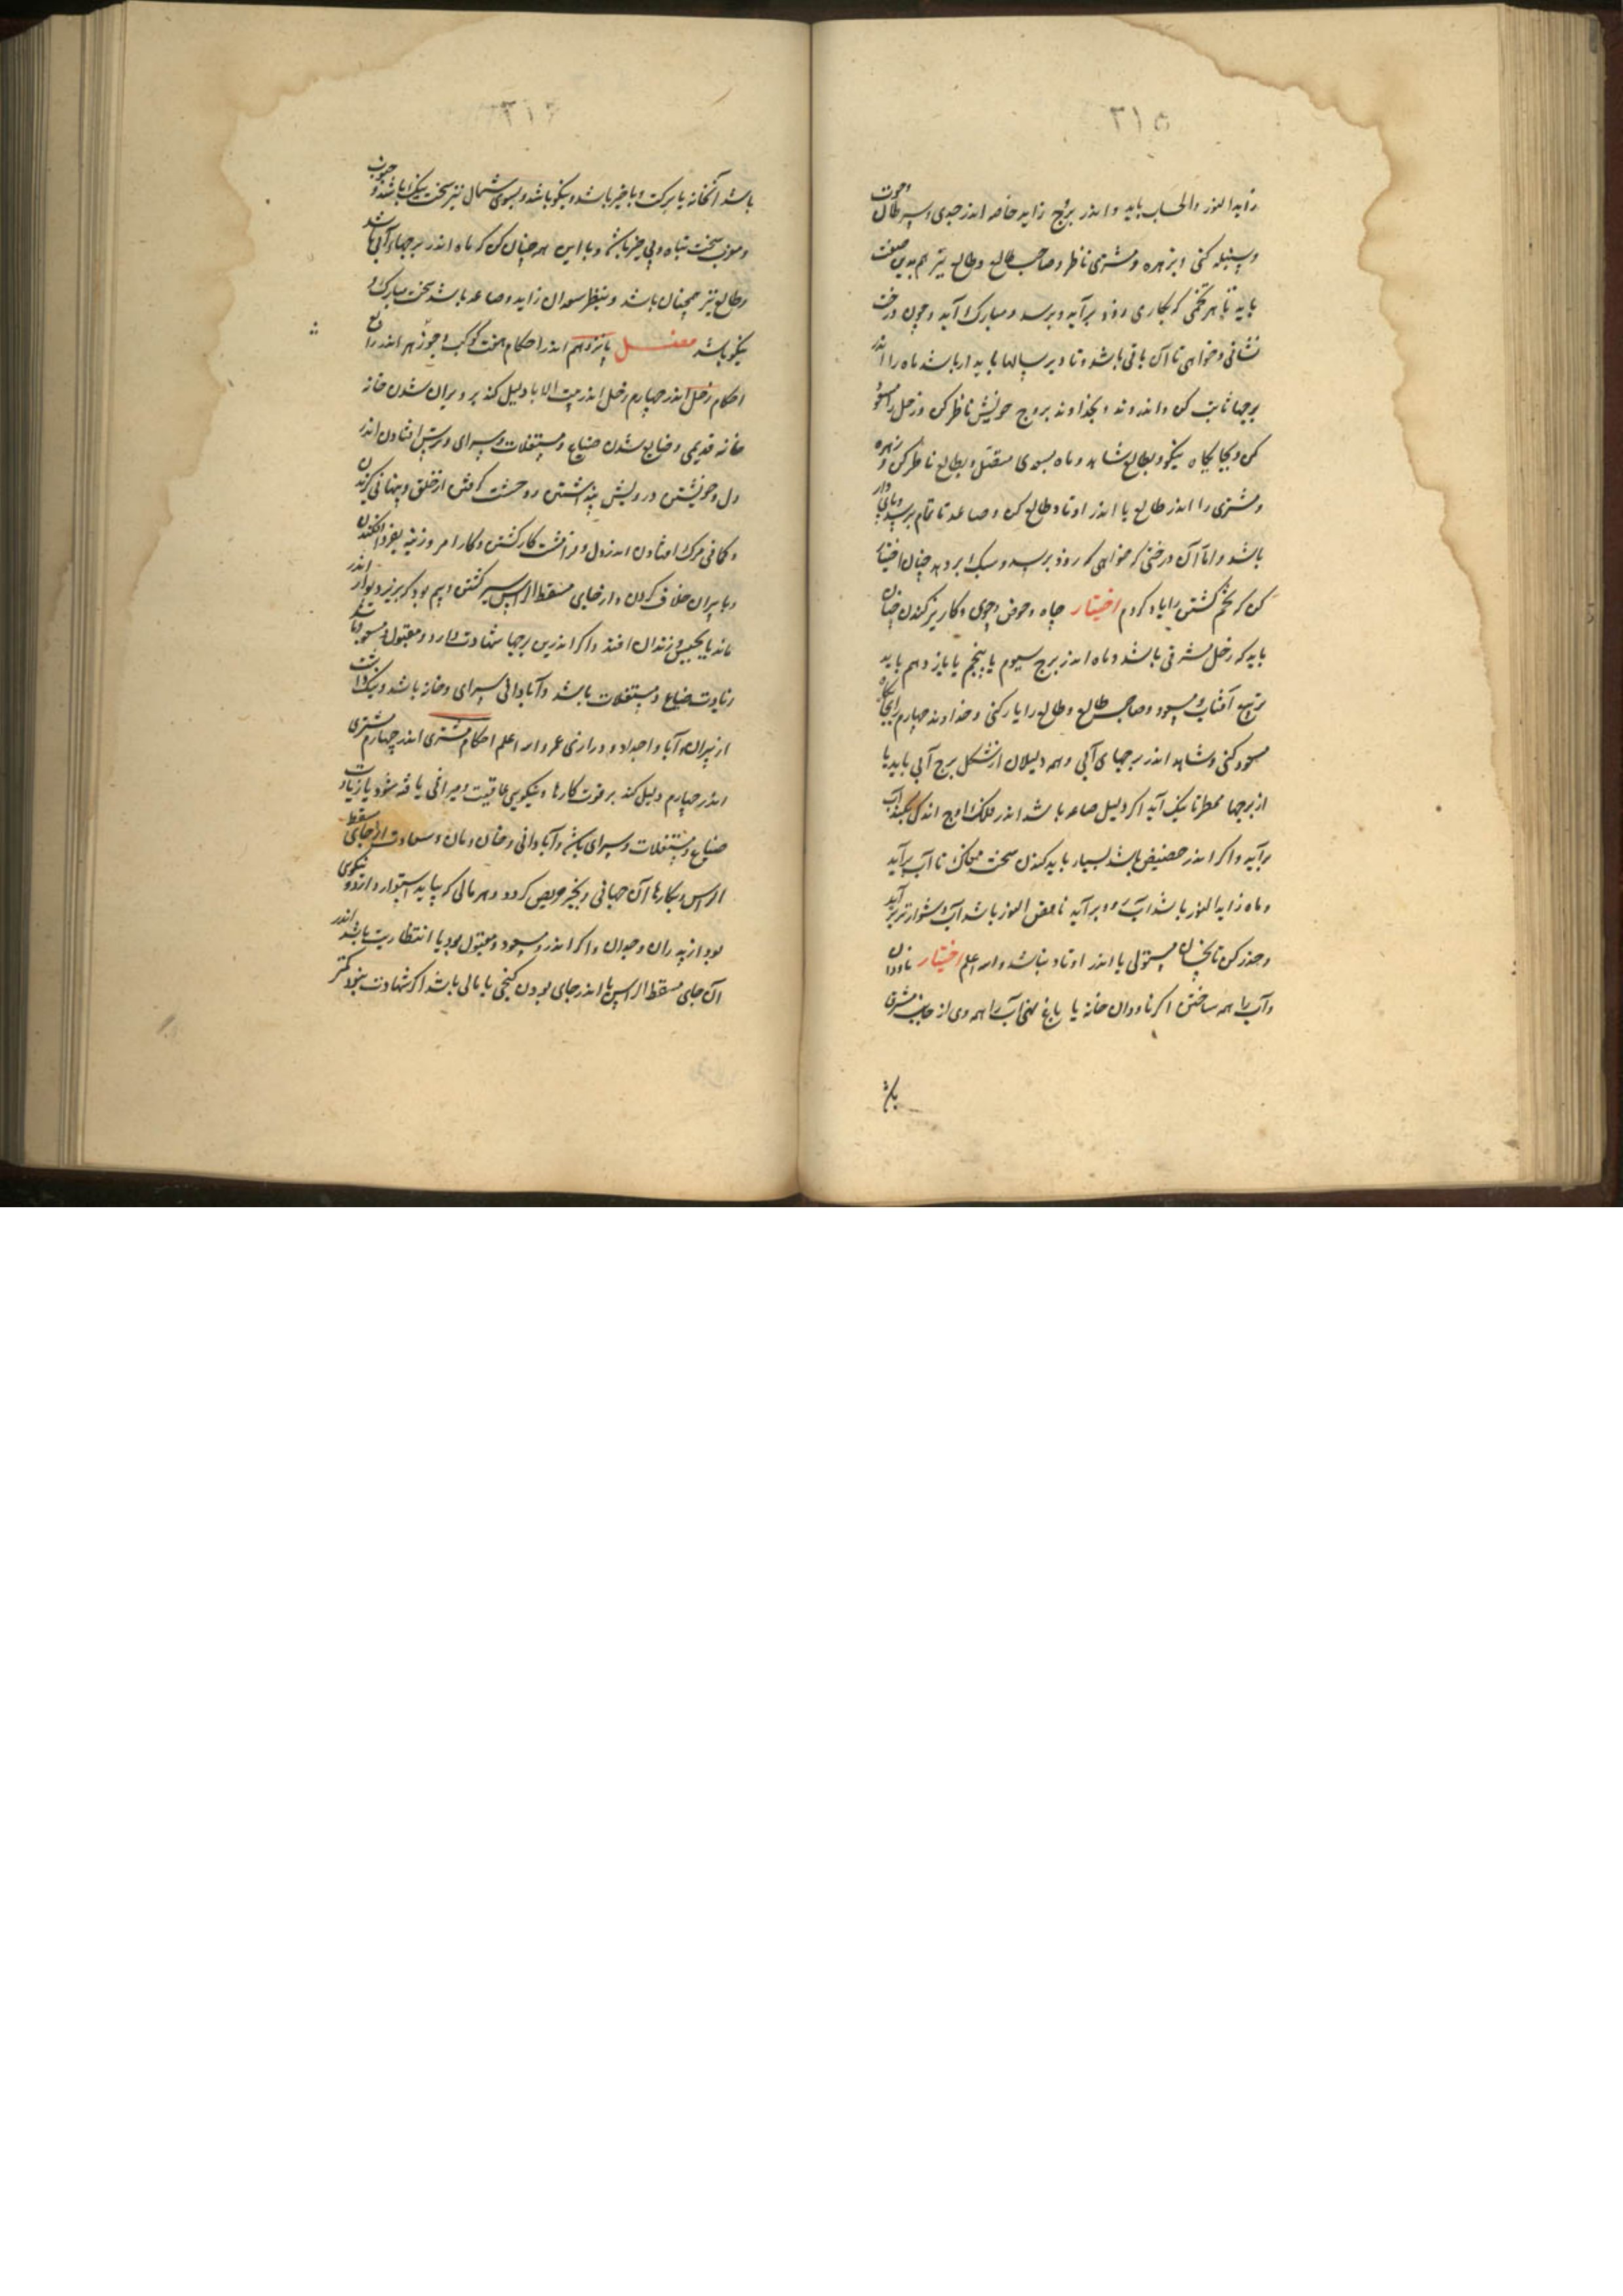 ٣١٥
زایدا النور والحساب باید و اندر بروج زاید خاصه اندر جدی و سرطان و حوت
و سنبله کنی و بزهره و مشتری ناظر و صاحب طالع و طالع نیز هم بدین صفت
باید تا هر تخمی که بکاری زود برآید و برسد و مبارک آید و چون درخت
نشانی و خواهی تا آن باقی باشد و تا دیر سالها پایدار باشد ماه را اندر
برجهاء ثابت کن و اندر وتد و بخداوند بروج خویش ناظر کن و زحل را مسعود
کن و بجایگاه نیکو و بطالع شاهد و ماه بسعدی متصل و بطالع ناظر کن و زهره
و مشتری را اندر طالع یا اندر اوتاد طالع کن و صاعد تا تمام برسد و پای دار
باشد و اما آن درختی که خواهی که زود برسد و سبک بر دهد چنان اختیار
کن که تخم کشتن را یاد کردم اختیار چاه و حوض و جوی و کاریز کندن چنان
باید که زحل مشرقی باشد و ماه اندر برج سیوم یا پنجم یا یازدهم باید
تربیع آفتاب و مسعود و صاحب طالع و طالع را یار کنی و خداوند چهارم را بجایگاه
مسعود کنی و شاهد اندر برجهای آبی و همه دلیلان از شکل برج آبی باید یا
از برجها ممطر تا نیک آید اگر دلیل صاعد باشد اندر فلک اوج اندکی بکنند آب
برآید و اگر اندر حضیض باشد بسیار باید کندن سخت مغاک تا آب برآید
و ماه زایدا النور باشد آب زود برآید ناقص النور باشد آب دشوارتر برآید
و حذر کن تا نحسان مستولی یا اندر اوتاد نباشد والله اعلم اختیار ناودان
و آب راهه ساختن اگر ناودان خانه یا باغ نهی آب راهه وی از جانب مشرق
باشد
٣١٦
باشد آنخانه با برکت و با خیر باشد و نیکو باشد و بسوی شمال نیز سخت نیک باشد و جنوب
و مغرب سخت تباه و بی خیر باشد و با این همه چنان کن که ماه اندر برجهاء آبی باشد
و طالع نیز همچنان باشد و بنظر سعدان زاید و صاعد باشد سخت مبارک و
نیکو باشد فصل پانزدهم اندر احکام هفت کوکب و جوزهر اندر رابع
احکام زحل اندر چهارم زحل اندر بیت الابا دلیل کند بر ویران شدن خانه
خانه قدیمی و ضایع شدن ضیاع و مستغلات و سرای و ترس افتادن اندر
دل و خویشتن درویش پنداشتن و وحشت گرفتن از خلق و پنهانی گزیدن
و کافی مرک افتادن اندر دل و فرامشت کار کشتن و کار امروزینه بفردا افکندن
و با پیران خلاف کردن و از جای مسقط الراس سیر کشتن و بیم بود که بریزد دیوار اندر
ماند یا بحبس و زندان افتد و اگر اندرین برجها شهادت دارد و مقبول و مسعود باشد
زیادت ضیاع و مستغلات باشد و آبادانی سرای و خانه باشد و نیک داشت
از پیران و آبا و اجداد و درازی عمر والله اعلم احکام مشتری اندر چهارم مشتری
اندر چهارم دلیل کند بر قوت کارها و نیکویی عاقبت و میراثی یافته شود یا زیادت
ضیاع و مستغلات و سرای باشد و آبادانی و خان و مان و سعادت از جای مسقط
الراس و بکارها آن جهانی و بخیر حریص گردد و هر مالی که بیابد استوار دارد و نیکوی
بود از پدران و جدان و اگر اندرو مسعود و مقبول بود یا انتظاریت باشد اندر
آن جای مسقط الراس یا اندر جای بودن گنجی یا مالی باشد اگر شهادت بنحوی کمتر